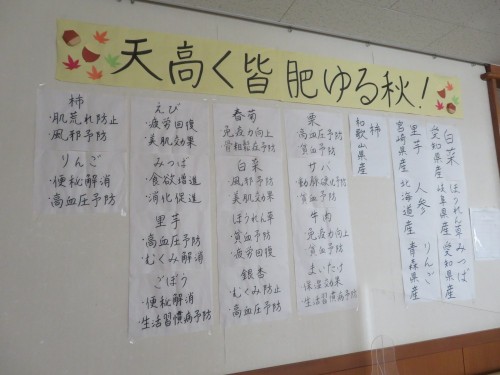 天高く皆肥ゆる秋！
柿
・肌荒れ防止
・風邪予防
りんご
・便秘解消
・高血圧予防
えび
・疲労回復
・美肌効果
みつば
・食欲増進
・消化促進
里芋
・高血圧予防
・むくみ解消
ごぼう
・便秘解消
・生活習慣病予防
春菊
・免疫力向上
・骨粗鬆症予防
白菜
・風邪予防
・美肌効果
ほうれん草
・貧血予防
・疲労回復
銀杏
・むくみ防止
・高血圧予防
栗
・高血圧予防
・貧血予防
サバ
・動脈硬化予防
・貧血予防
牛肉
・免疫力向上
・貧血予防
まいたけ
・保温効果
・生活習慣病予防
柿
和歌山県産
里芋 人参 りんご
宮崎県産 北海道産 青森県産
白菜 ほうれん草 みつば
愛知県産 岐阜県産 愛知県産